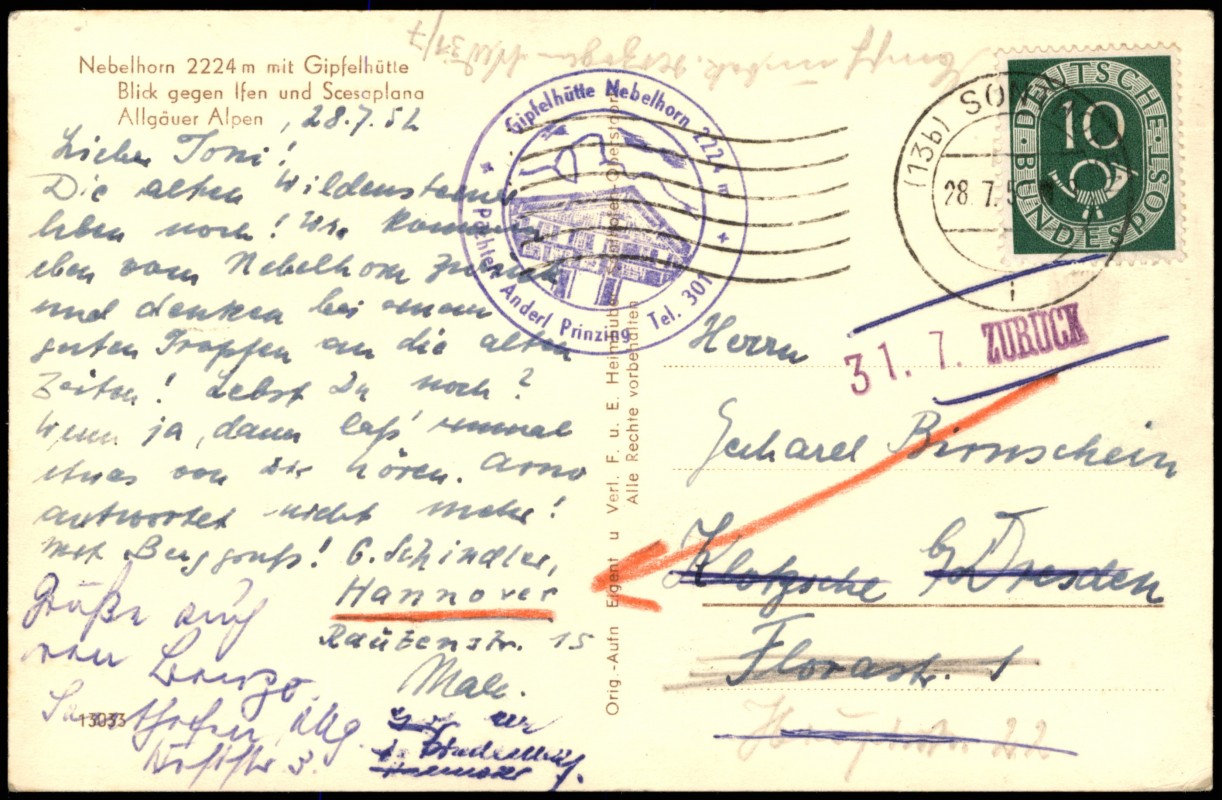 Nebelhorn 2224 m mit Gipfelhütte
Blick gegen Ifen und Scesaplana
Allgäuer Alpen
28.7.52
Lieber Toni!
Die alten Wildensteiner
leben noch! Wir kommen
eben vom Nebelhorn zurück
und denken bei einem
guten Tropfen an die alten
Zeiten! Lebst Du noch?
Wenn ja, dann laß' einmal
etwas von Dir hören. Arno
antwortet nicht mehr!
Mit Berggruß! G. Schindler,
Hannover
Rautenstr. 15
Grüße auch
von
Allg.
3.
13033
Gipfelhütte Nebelhorn 2224 m
Pächter: Anderl Prinzing Tel. 301
Orig.-Aufn Eigent u Verl. F. u. E. Heimhuber
Alle Rechte vorbehalten
(13b) SON
28.7.5
DEUTSCHE BUNDESPOST
10
31. 7. ZURÜCK
Herrn
Gerhard Birnschein
Klotzsche b/Dresden
Florastr. 1
22
31/7